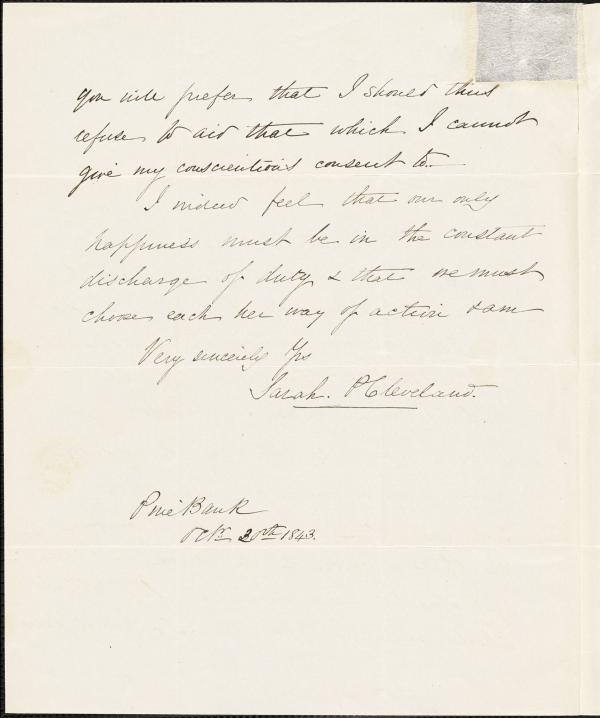 you will prefer that I should thus
refuse to aid that which I cannot
give my conscientious consent to.
I indeed feel that our only
happiness must be in the constant
discharge of duty & that we must
choose each her way of action & am
Very sincerely Yrs
Sarah. P Cleveland.
Pine Bank
Octr. 20th 1843.